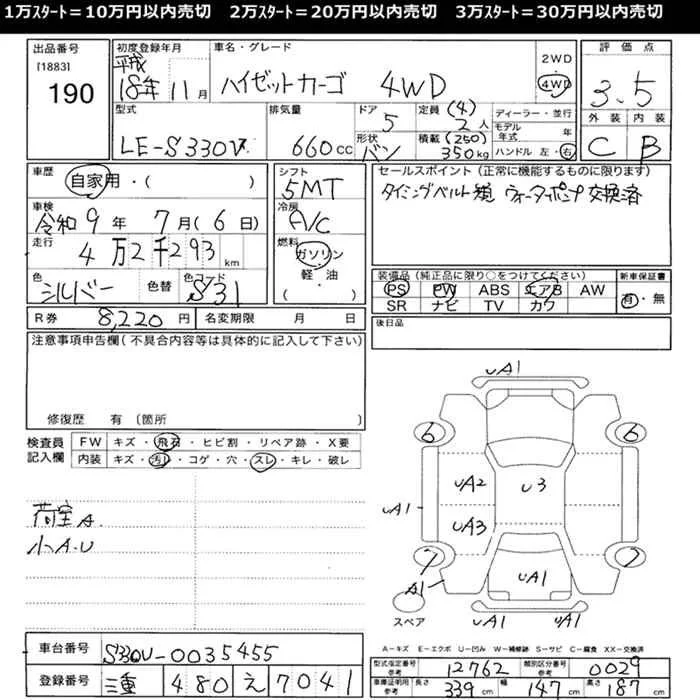 1万スタート=10万円以内売切 2万スタート=20万円以内売切 3万スタート=30万円以内売切
出品番号
[1883]
190
初度登録年月
平成
18年 11月
車名・グレード
ハイゼットカーゴ 4WD
2WD
4WD
評価点
3.5
外装 内装
C B
型式
LE-S330V
排気量
660cc
ドア
5
形状
バン
定員 (4)
2人
積載 (250)
350kg
ディーラー・並行
モデル年式 年
ハンドル 左・右
車歴
自家用・( )
車検
令和9年 7月(6日)
走行
4万2千293km
色
シルバー
色替
色コード
S31
シフト
5MT
冷房
A/C
燃料
ガソリン
軽・油
( )
セールスポイント(正常に機能するものに限ります)
タイミングベルト ウォーターポンプ 交換済
装備品(純正品に限り○をつけてください)
PS PW ABS エアB AW
SR ナビ TV カワ
新車保証書
有・無
R券 8,220円
名変期限 月 日
後日品
注意事項申告欄(不具合内容等は具体的に記入して下さい)
修復歴 有 〔箇所
検査員記入欄
FW キズ・飛石・ヒビ割・リペア跡・X要
内装 キズ・汚れ・コゲ・穴・スレ・キレ・破レ
荷室A.
小A.U
UA1
6 6
UA2 U3
UA1
UA3
7 7
A1 UA1
スペア UA1 UA1
A―キズ E―エクボ U―凹み W―補修跡 S―サビ C―腐食 XX―交換済
車台番号 S330V-0035455
登録番号 三重 480 え 7041
型式指定番号 参考 12762
類別区分番号 参考 0029
車庫証明用 参考 長さ 339cm 幅 147cm 高さ 187cm